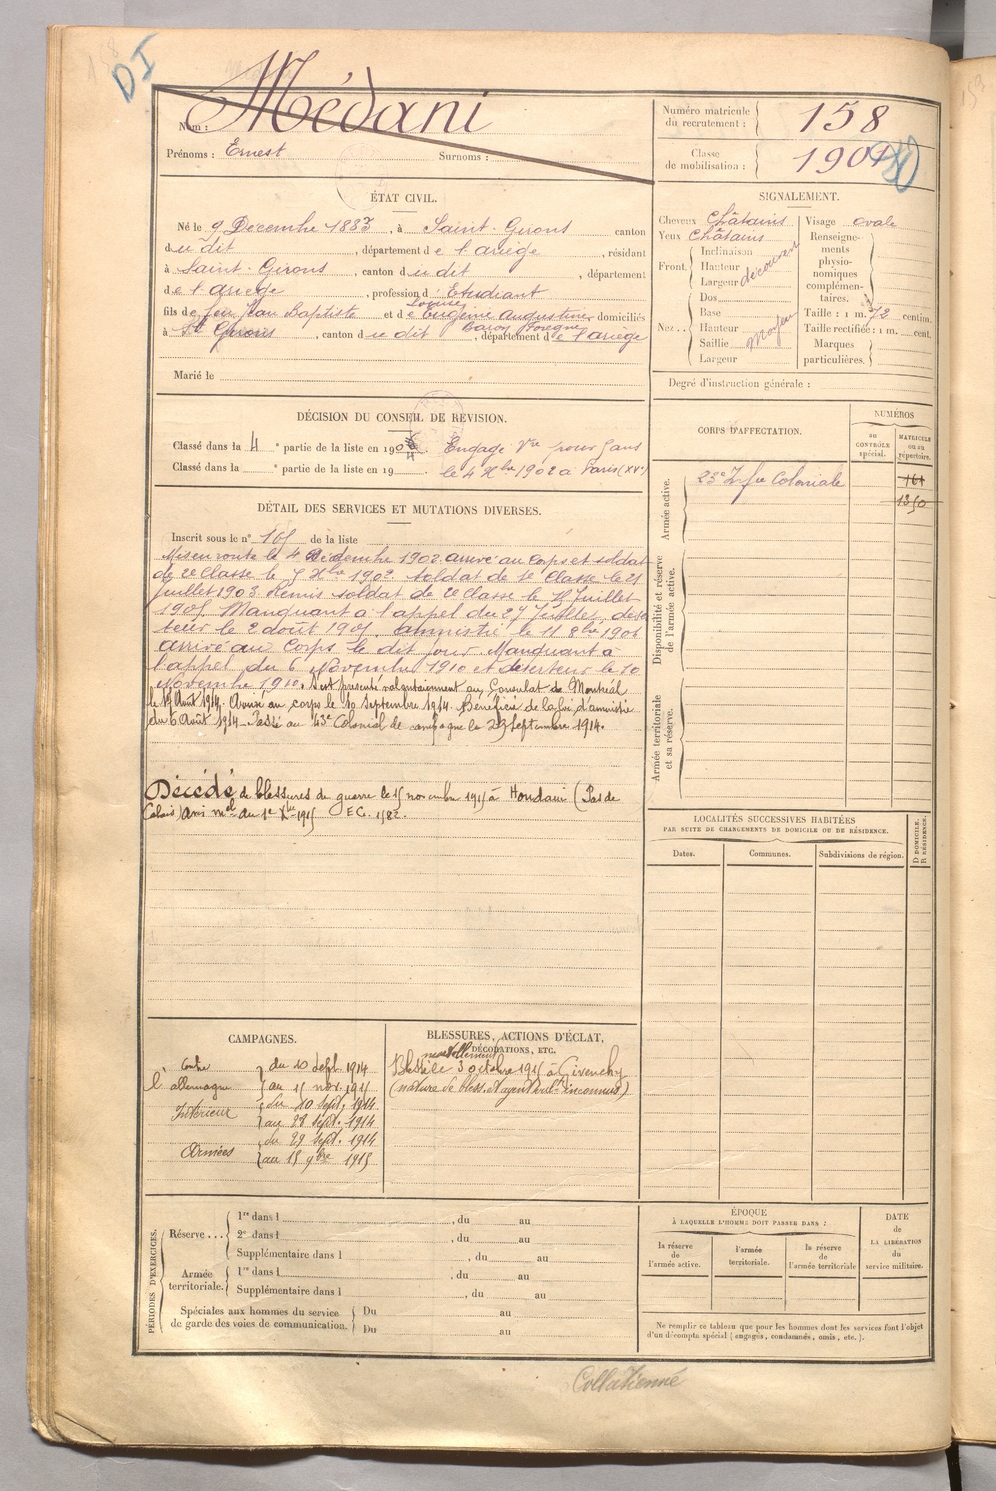 DI
Nom : Médani
Prénoms : Ernest Surnoms :
Numéro matricule du recrutement : 158
Classe de mobilisation : 1901
ÉTAT CIVIL.
Né le 9 Décembre 1883, à Saint-Girons canton
du dit, département de l'ariège, résidant
à Saint-Girons, canton du dit, département
de l'ariège, profession d' Etudiant
fils de feu Jean Baptiste et de Louise Eugénie Augustine domiciliés
à St Girons, canton du dit, département de l'ariège
Marié le
SIGNALEMENT.
Cheveux châtains
Yeux châtains
Front. Inclinaison
Hauteur
Largeur découvert
Nez... Dos
Base
Hauteur
Saillie moyen
Largeur
Visage ovale
Renseignements physionomiques complémentaires.
Taille : 1 m. 72 centim.
Taille rectifiée : 1 m. cent.
Marques particulières.
Degré d'instruction générale :
DÉCISION DU CONSEIL DE REVISION.
Classé dans la 4e partie de la liste en 1904. Engagé Vre pour 5 ans
Classé dans la e partie de la liste en 19 le 4 Xbre 1902 a Paris (XVe)
CORPS D'AFFECTATION.
NUMÉROS
au CONTRÔLE spécial.
MATRICULE ou au répertoire.
Armée active.
23e Infie Coloniale
161
1350
Disponibilité et réserve de l'armée active.
Armée territoriale et sa réserve.
DÉTAIL DES SERVICES ET MUTATIONS DIVERSES.
Inscrit sous le n° 105 de la liste
Mis en route le 4 Décembre 1902 arrivé au Corps et soldat
de 2e Classe le 5 Xbre 1902. Soldat de 1e Classe le 21
Juillet 1903. Remis soldat de 2e Classe le Juillet
1905. Manquant à l'appel du 27 Juillet, déser
teur le 2 août 1905. amnistié le 11 8bre 1906
arrivé au Corps le dit jour. Manquant à
l'appel du 6 Novembre 1910 et déserteur le 10
Novembre 1910. S'est présenté volontairement au Consulat de Montréal
le Août 1914. Arrivé au corps le 10 Septembre 1914. Bénéficie de la loi d'amnistie
du 6 Août 1914. Passé au 43e Colonial de campagne le 29 Septembre 1914.
Décédé de blessures de guerre le 15 novembre 1915 à Houdain (Pas de
Calais) Avis mel du 1er Xbre 1915 EG. 1582.
LOCALITÉS SUCCESSIVES HABITÉES
PAR SUITE DE CHANGEMENTS DE DOMICILE OU DE RÉSIDENCE.
Dates. Communes. Subdivisions de région.
D DOMICILE. R RÉSIDENCE.
CAMPAGNES.
Contre du 10 Sept. 1914
l'allemagne au 15 nov. 1915
Intérieur du 10 Sept. 1914
au 28 Sept. 1914
Armées du 29 Sept. 1914
au 15 9bre 1915
BLESSURES, ACTIONS D'ÉCLAT,
DÉCORATIONS, ETC.
mortellement
Blessé le 3 octobre 1915 à Givenchy
(nature de bless. et agent vult inconnus)
PÉRIODES D'EXERCICES.
Réserve... 1re dans l , du au
2e dans l , du au
Supplémentaire dans l , du au
Armée territoriale. 1re dans l , du au
Supplémentaire dans l , du au
Spéciales aux hommes du service de garde des voies de communication. Du au
Du au
ÉPOQUE
À LAQUELLE L'HOMME DOIT PASSER DANS :
la réserve de l'armée active.
l'armée territoriale.
la réserve de l'armée territoriale
DATE de LA LIBÉRATION du service militaire.
Ne remplir ce tableau que pour les hommes dont les services font l'objet
d'un décompte spécial (engagés, condamnés, omis, etc.).
Collationné